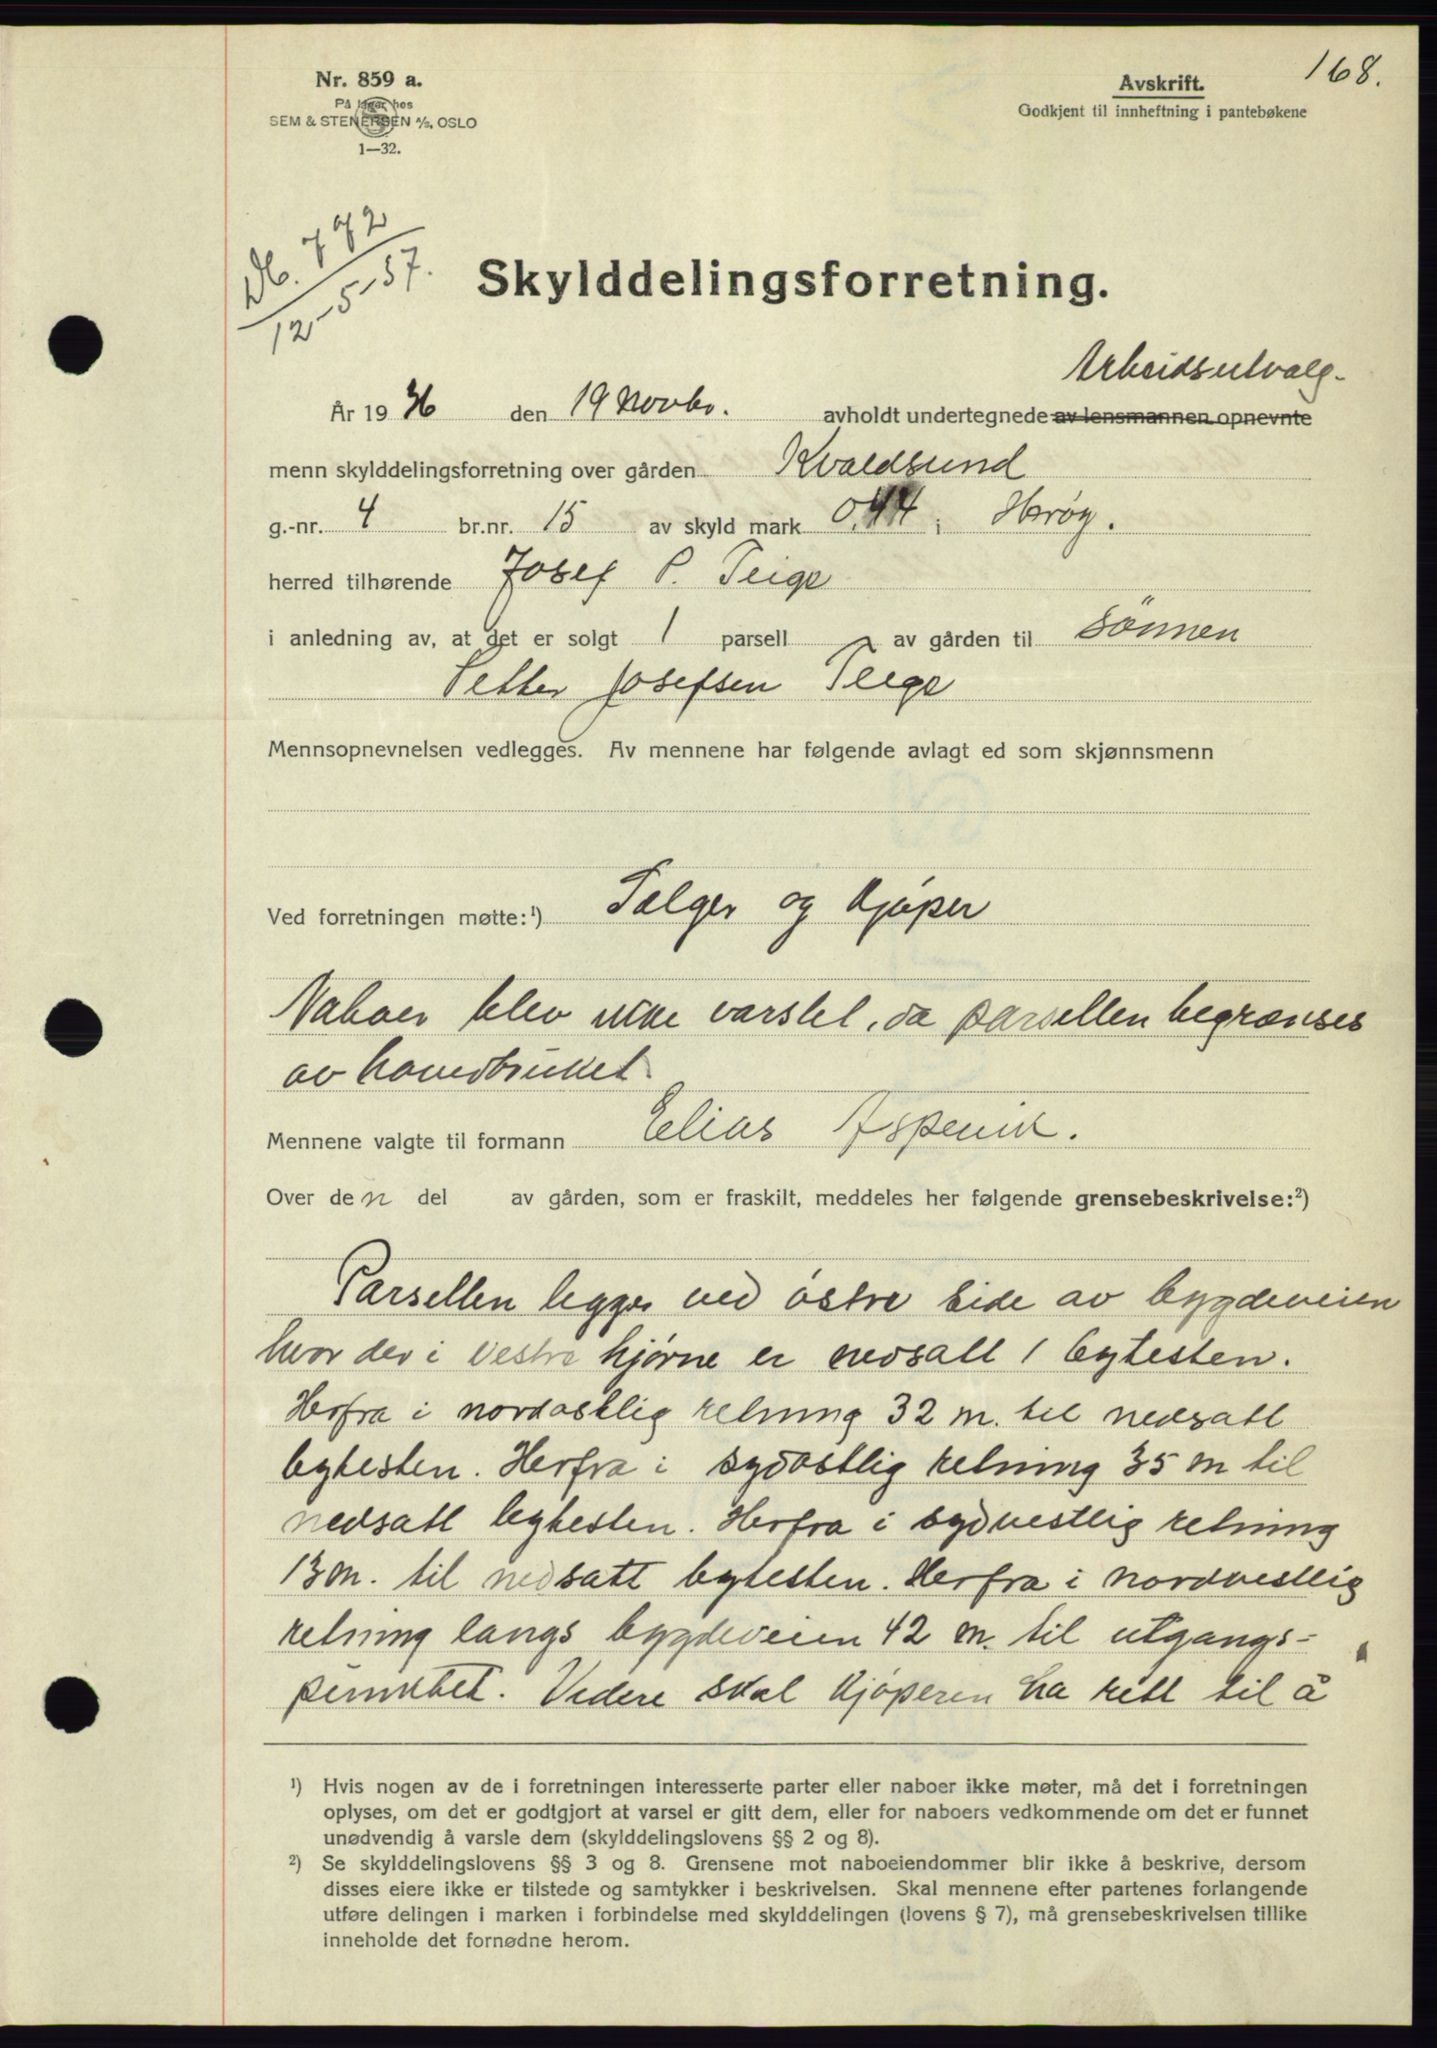 168.
Nr. 859 a.
På lager hos
SEM & STENERSEN A/S, OSLO
1—32.
Avskrift.
Godkjent til innheftning i pantebøkene
Db. 772
12-5-37.
Skylddelingsforretning.
Arbeidsutvalg-
År 1936 den 19 Novbr. avholdt undertegnede av lensmannen opnevnte
menn skylddelingsforretning over gården Kvaldsund
g.-nr. 4 br.nr. 15 av skyld mark 0,44 i Herøy.
herred tilhørende Josef P. Teige
i anledning av, at det er solgt 1 parsell av gården til sönnen
Petter Josefsen Teige
Mennsopnevnelsen vedlegges. Av mennene har følgende avlagt ed som skjønnsmenn
Ved forretningen møtte:¹) Selger og Kjöper
Naboer blev ikke varslet, da parsellen begrænses
av hovedbruket.
Mennene valgte til formann Elias Aspevik.
Over den del av gården, som er fraskilt, meddeles her følgende grensebeskrivelse:²)
Parsellen legges ved östre side av bygdeveien
hvor der i vestre hjørne er nedsatt 1 bytesten.
Herfra i nordostlig retning 32 m. til nedsatt
bytesten. Herfra i sydostlig retning 35 m til
nedsatt bytesten. Herfra i sydvestlig retning
13 m. til nedsatt bytesten. Herfra i nordvestlig
retning langs bygdeveien 42 m. til utgangs-
punktet. Videre skal Kjöperen ha rett til å
¹) Hvis nogen av de i forretningen interesserte parter eller naboer ikke møter, må det i forretningen
oplyses, om det er godtgjort at varsel er gitt dem, eller for naboers vedkommende om det er funnet
unødvendig å varsle dem (skylddelingslovens §§ 2 og 8).
²) Se skylddelingslovens §§ 3 og 8. Grensene mot naboeiendommer blir ikke å beskrive, dersom
disses eiere ikke er tilstede og samtykker i beskrivelsen. Skal mennene efter partenes forlangende
utføre delingen i marken i forbindelse med skylddelingen (lovens § 7), må grensebeskrivelsen tillike
inneholde det fornødne herom.